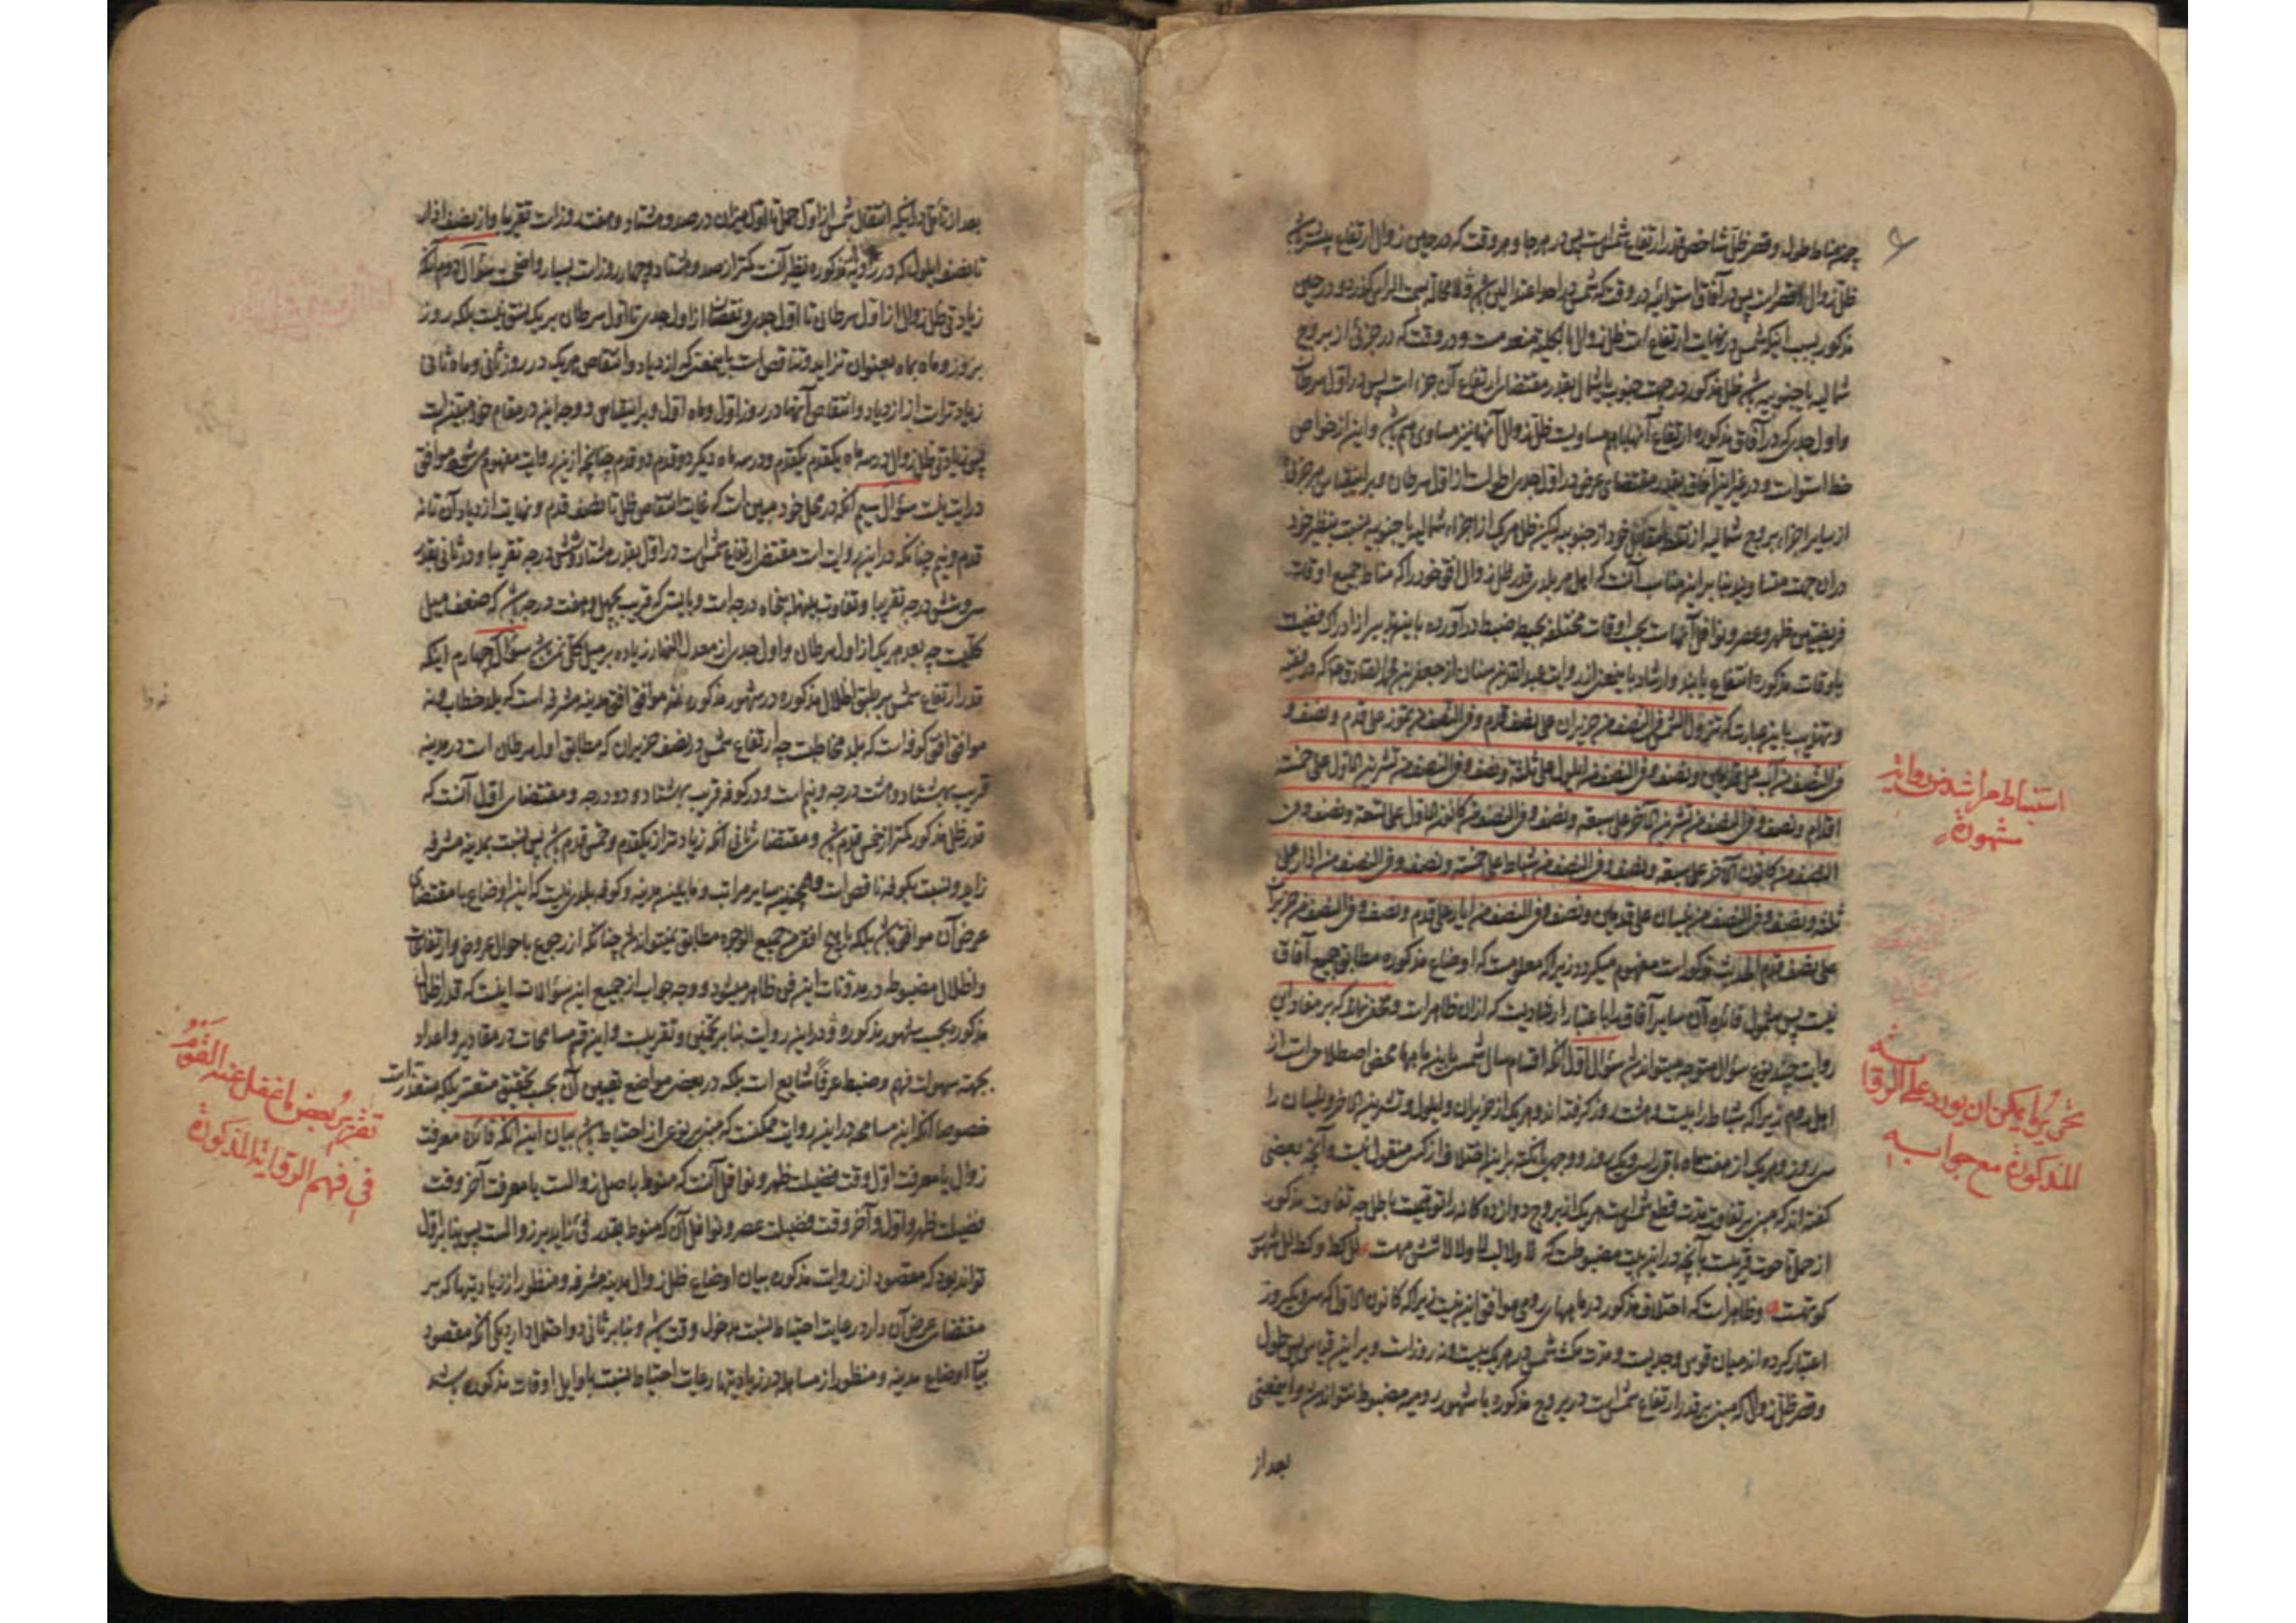 چه مناط طول و قصر ظل شاخص قدر ارتفاع شمس است پس در هر جا و هر وقت که در حین زوال ارتفاع بیشتر باشد
ظل زوال اقصر است پس در آفاق استوائیه در وقتی که شمس در احد اعتدالین باشد لا محاله بسمت الراس گذرد و در حین
مذکور بسبب اینکه شمس در نهایت ارتفاع است ظل زوال بالکلیه منعدمست و در وقتی که در جزئی از بروج
شمالیه یا جنوبیه باشد ظل مذکور در جهت جنوب یا شمال بقدر مقتضای ارتفاع آن جزء است پس در اول سرطان
و اول جدی که در آفاق مذکوره ارتفاع آنها با هم مساویست ظل زوال آنها نیز مساوی هم باشد و این از خواص
خط استواست و در غیر این آفاق بقدر مقتضای عرض در اول جدی اطولست از اول سرطان و بر اینقیاس هر جزئی
از سایر اجزاء بروج شمالیه از مقابل خود از جنوبیه لیکن ظل هر یک از اجزاء شمالیه یا جنوبیه نسبت بنظیر خود
در ان جهت متساویند بنا بر این مناسب آنست که اهل هر بلد قدر ظل زوال افق خود را که مناط جمیع اوقات
فریضتین ظهر و عصر و نوافل آنهاست بحسب اوقات مختلفه بحیطه ضبط در آورده باینتدبیر از ادراک فضیلت
باوقات مذکوره انتفاع یابند و ارشاد باینمعنی از روایت عبدالله بن سنان از جعفر بن محمد الصادق ع که در فقیه
و تهذیب باین عبارت که تزول الشمس فی النصف من حزیران علی نصف قدم و فی النصف من تموز علی قدم و نصف و
فی النصف من آب علی قدمین و نصف و فی النصف من ایلول علی ثلثة و نصف و فی النصف من تشرین الاول علی خمسة
اقدام و نصف و فی النصف من تشرین الآخر علی سبعة و نصف و فی النصف من کانون الاول علی تسعة و نصف و فی
النصف من کانون الآخر علی سبعة و نصف و فی النصف من شباط علی خمسة و نصف و فی النصف من آذار علی
ثلثة و نصف و فی النصف من نیسان علی قدمین و نصف و فی النصف من ایار علی قدم و نصف و فی النصف من حزیران
علی نصف قدم الحدیث مذکور است مفهوم میگردد زیرا که معلومست که اوضاع مذکوره مطابق جمیع آفاق
نیست پس شمول فائده آن سایر آفاق را باعتبار ارشادیست که از ان ظاهر است و مخفی نماند که بر مفاد این
روایت چند نوع سؤال متوجه میتواند شد سؤال اول آنکه اقسام سال شمسی باین ماهها محض اصطلاحی است از
اهل روم زیرا که شباط را بیست و هشت روز گرفته اند و هر یک از حزیران و ایلول و تشرین الآخر و نیسان را
سی روز و هر یک از هفت ماه باقی را سی و یک روز و وجهی نکته برای اختلاف از کسی منقول نیست و آنچه بعضی
گفته اند که مبنی بر تفاوت مدت قطع شمس است هر یک از بروج دوازده گانه را توقیتست باطل چه تفاوت مذکور
از حمل تا حوت قریبست بآنچه در این بیت مضبوطست که لا و لالب لا و لا لا شش مهست لل کط و کط لل شهور
کوتهست و ظاهر است که اختلاف مذکور در ماههای رومی موافق این نیست زیرا که کانون الاول که سی و یکروز
اعتبار کرده اند میان قوس و جدیست و مدت مکث شمس در هر یک بیست و نه روز است و بر این قیاس پس طول
و قصر ظل زوال که مبنی بر قدر ارتفاع شمس است در بروج مذکوره با شهور رومیه مضبوط نتواند شد و اینمعنی
بعد از
استنباط مراشد من روایة
مشهورة
تحریر ما یمکن ان یورد علی الروایة
المذکورة مع جوابه
بعد از تأمل در اینکه انتقال شمس از اول حمل تا اول میزان در صد و هشتاد و هفت روز است تقریبا و از نصف اذار
تا نصف ایلول که در روایه مذکوره نظیر آنست کمتر از صد و هشتاد و چهار روز است بسیار واضحست سؤال دوم آنکه
زیادتی ظل زوال از اول سرطان تا اول جدی و نقصان از اول جدی تا اول سرطان بر یک نسق نیست بلکه روز
بروز و ماه بماه بعنوان تزاید و تناقص است باینمعنی که ازدیاد و انتقاص هر یک در روز ثانی و ماه ثانی
زیادتر است از ازدیاد و انتقاص آنها در روز اول و ماه اول و بر اینقیاس و وجه این در مقام خود مبین است
پس زیادتی ظل زوال در سه ماه یکقدم یکقدم و در سه ماه دیگر دو قدم دو قدم چنانچه از این روایت مفهوم میشود موافق
درایت نیست سؤال سیم آنکه در محل خود مبین است که غایت انتقاص ظل تا نصف قدم و نهایت ازدیاد آن تا نه
قدم و نیم چنانکه در این روایت است مقتضی ارتفاع شمس است در اول بقدر هشتاد و شش درجه تقریبا و در ثانی بقدر
سی و شش درجه تقریبا و تفاوت بینهما پنجاه درجه است و بایستی که قریب بچهل و هفت درجه باشد که ضعف میل
کلیست چه بعد هر یک از اول سرطان و اول جدی از معدل النهار زیاده بر میل کلی نمیباشد سؤال چهارم اینکه
قدر ارتفاع شمس بر طبق اظلال مذکوره در شهور مذکوره نه موافق افق مدینه مشرفه است که بلد خطابست و نه
موافق افق کوفه است که بلد مخاطبست چه ارتفاع شمس در نصف حزیران که مطابق اول سرطان است در مدینه
قریب بهشتاد و هشت درجه و نیم است و در کوفه قریب بهشتاد و دو درجه و مقتضای اول آنست که
قدر ظل مذکور کمتر از خمس قدم باشد و مقتضای ثانی آنکه زیادتر از یکقدم و خمس قدم باشد پس نسبت بمدینه مشرفه
زاید و نسبت بکوفه ناقص است و همچنین سایر مراتب و مابین مدینه و کوفه بلدی نیست که این اوضاع با مقتضای
عرض آن موافق باشد بلکه با هیچ افق من جمیع الوجوه مطابق نمیتواند شد چنانکه از رجوع باحوال عروض و ارتفاعات
و اظلال مضبوطه در مدونات این فن ظاهر میشود و وجه جواب از جمیع این سؤالات اینست که قدر اظلال
مذکوره بحسب شهور مذکوره در این روایت بنا بر تخمین و تقریبست و این قسم مسامحات در مقادیر و اعداد
بجهت سهولت فهم و ضبط عرفا شایع است بلکه در بعضی مواضع تعیین آن بحسب تحقیق متعسر بلکه متعذر است
خصوصا آنکه این مسامحه در این روایت ممکنست که مبنی بر نوعی از احتیاط باشد بیان این آنکه فائده معرفت
زوال یا معرفت اول وقت فضیلت ظهر و نوافل آنست که منوط باصل زوالست یا معرفت آخر وقت
فضیلت ظهر و اول و آخر وقت فضیلت عصر و نوافل آن که منوط بقدر فئ زاید بر زوالست پس بنا بر اول
تواند بود که مقصود از روایت مذکوره بیان اوضاع ظل زوال مدینه مشرفه و منظور از زیادتیها که بر
مقتضای عرض آن دارد رعایت احتیاط نسبت بدخول وقت باشد و بنا بر ثانی دو احتمال دارد یکی آنکه مقصود
بیان اوضاع مدینه و منظور از مساهله در زیادتیها رعایت احتیاط نسبت باوایل اوقات مذکوره باشد
تقریر بعض ما غفل عنه القوم
فی فهم الروایة المذکورة